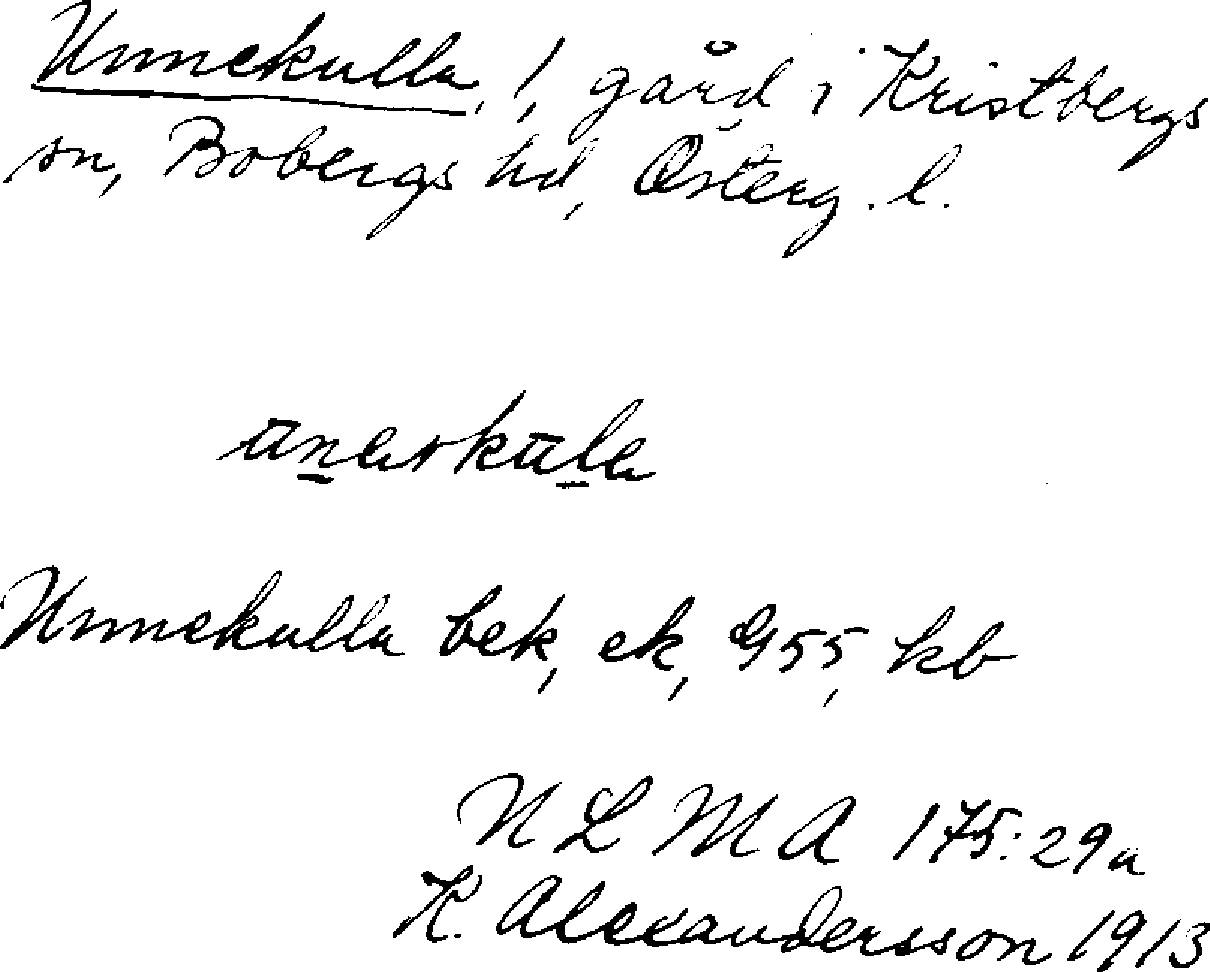 Unnekulla, 1, gård i Kristbergs
sn, Bobergs hd, Österg. l.
Unnekulla bek, ek, G55, kb
NLMA 175:29a
K. Alexandersson 1913